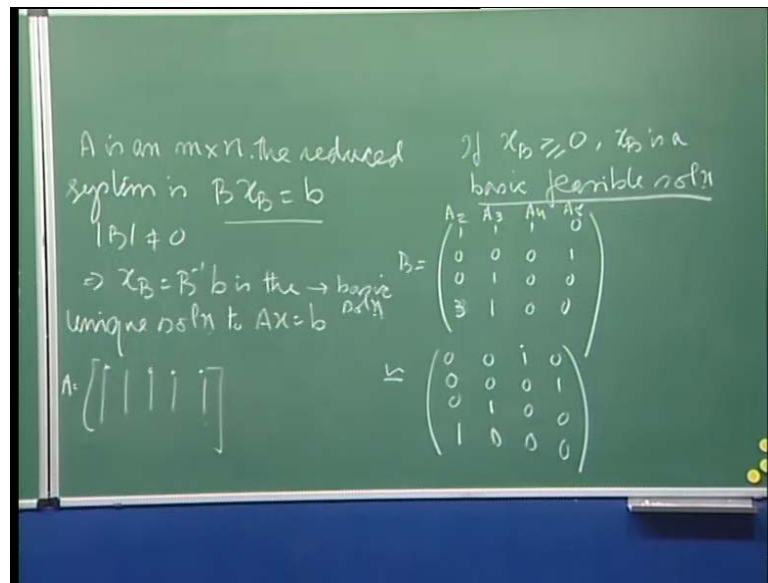 A is an m×n. the reduced
system is B x_B = b
|B| ≠ 0
⇒ x_B = B⁻¹ b is the → basic soln
unique soln to Ax = b
A = [ | | | | | ]
If x_B ≥ 0, x_B is a
basic feasible soln
A2 A3 A4 A5
1 1 1 0
B = 0 0 0 1
0 1 0 0
3 1 0 0
0 0 1 0
≃ 0 0 0 1
0 1 0 0
1 0 0 0